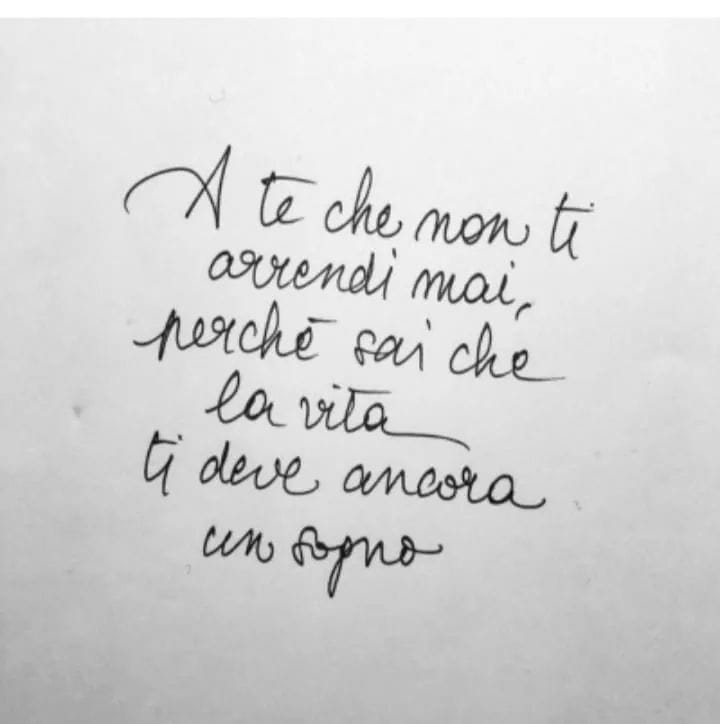 A te che non ti
arrendi mai,
perchē sai che
la vita
ti deve ancora
un sogno